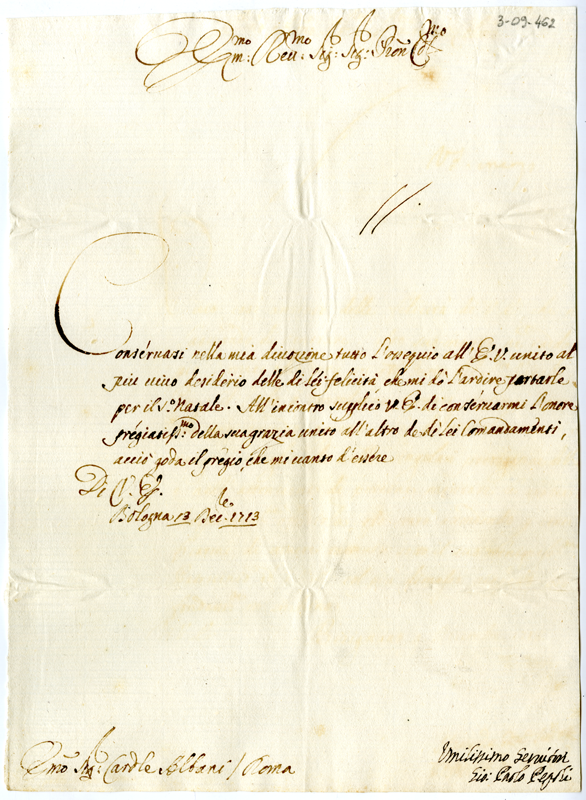 3-09-462
Em:mo Reu:mo Sig:r Sig:r Pron Col:mo
Consèruasi nella mia diuozione tutto l'ossequio all' E. V. unito al
piu uiuo desiderio delle di Lei felicità che mi dà l'ardire portarle
per il S.o Natale. All'incontro supplico V. E. di consèruarmi l'onore
prègiatiss:mo della sua grazia unito all'altro de di Lei Comandamenti,
acciò goda il prègio, che mi uanto d'èssere
Di V. E.
Bologna 13 Dec.bre 1713
Emo Sig:r Cardle Albani / Roma
Vmilissimo Seruitor
Gio: Paolo Pepoli